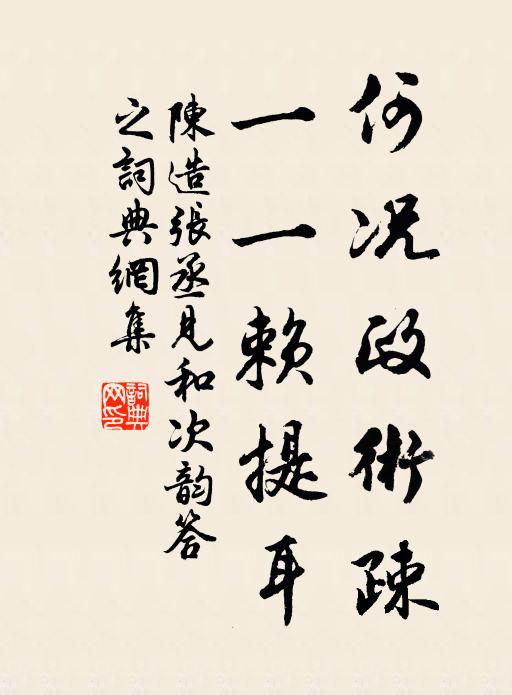 何况政術疎
一一賴提耳
陳造張丞見和次韵答
之詞典網集
詞典
网印